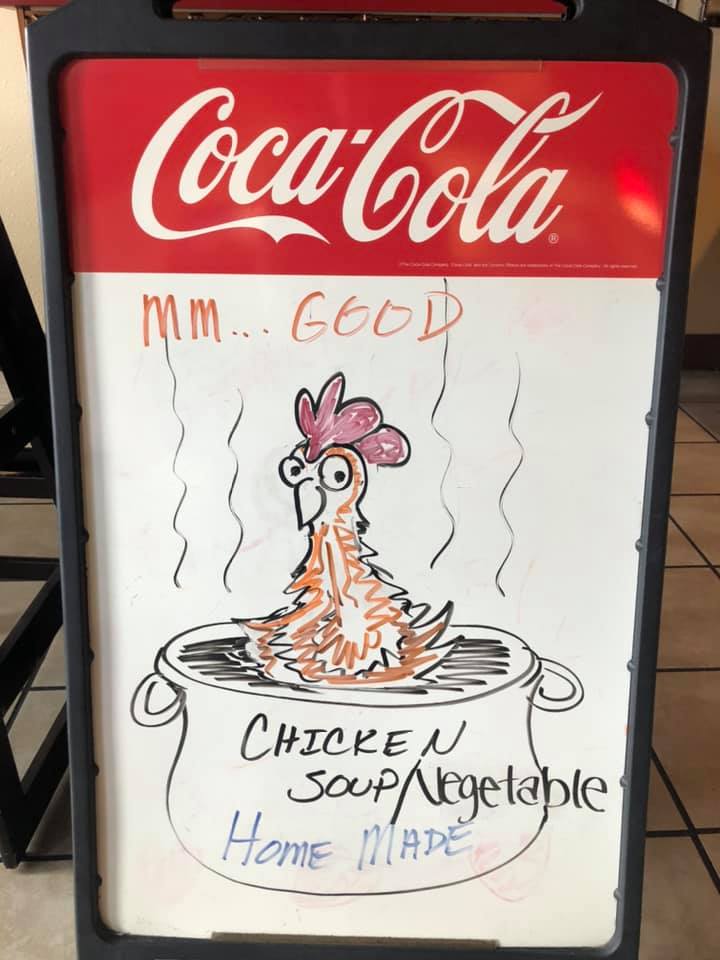 Coca-Cola®
MM... GOOD
CHICKEN
SOUP/Vegetable
HOME MADE